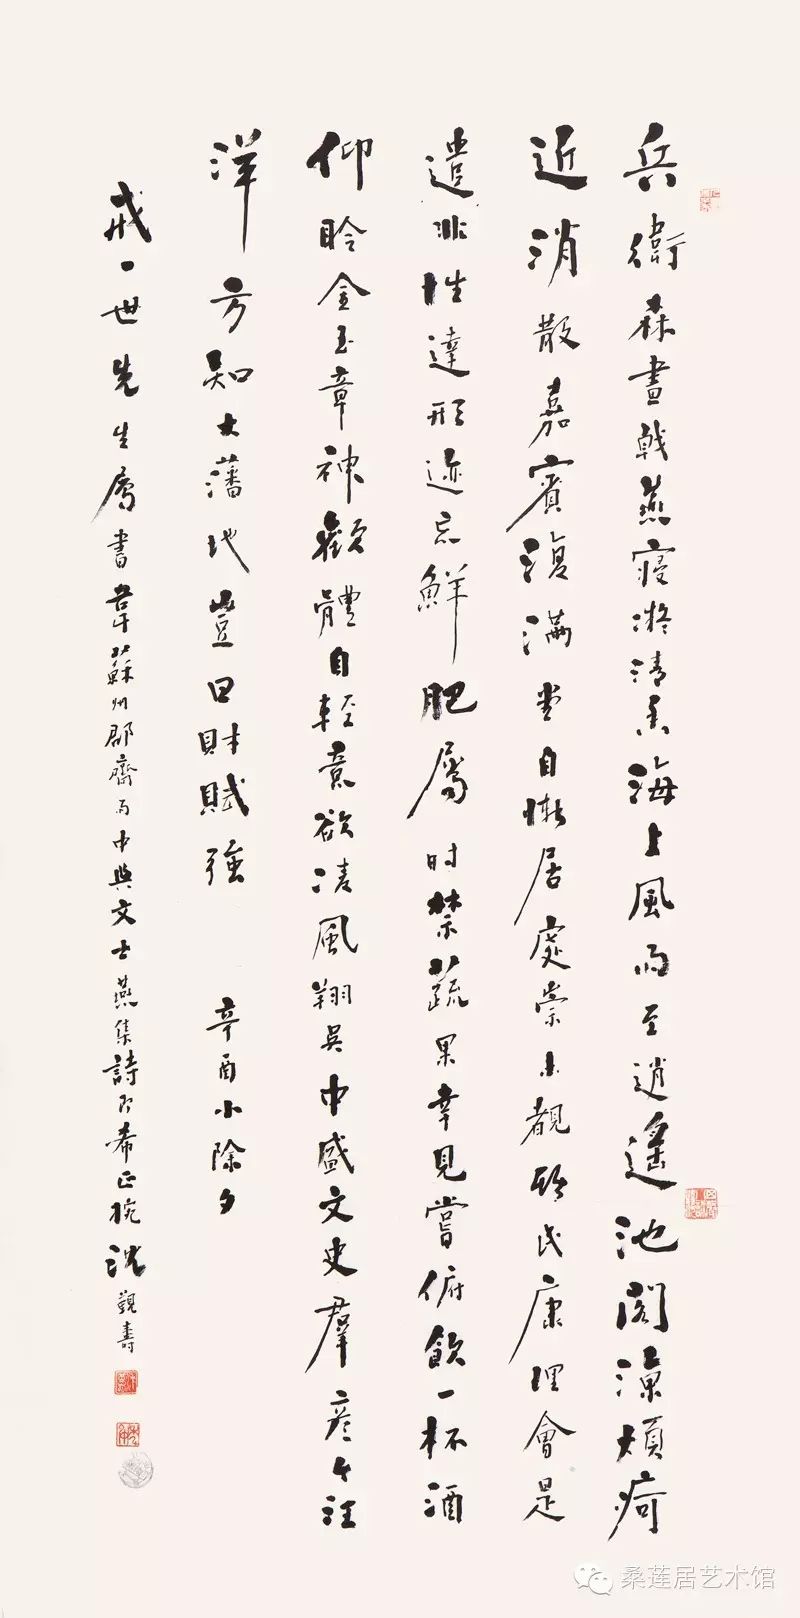 兵衛森畫戟燕寢凝清香海上風雨至逍遙池閣涼煩疴
近消散嘉賓復滿堂自慚居處崇未覩斯民康理會是
遣非性達形迹忘鮮肥屬時禁蔬果幸見嘗俯飲一杯酒
仰聆金玉章神歡體自輕意欲淩風翔吳中盛文史羣彥今汪
洋方知大藩地豈曰財賦強 辛酉小除夕
戒一世先生屬書韋蘇州郡齋雨中與文士燕集詩即希正捥 沈覲壽
桑莲居艺术馆